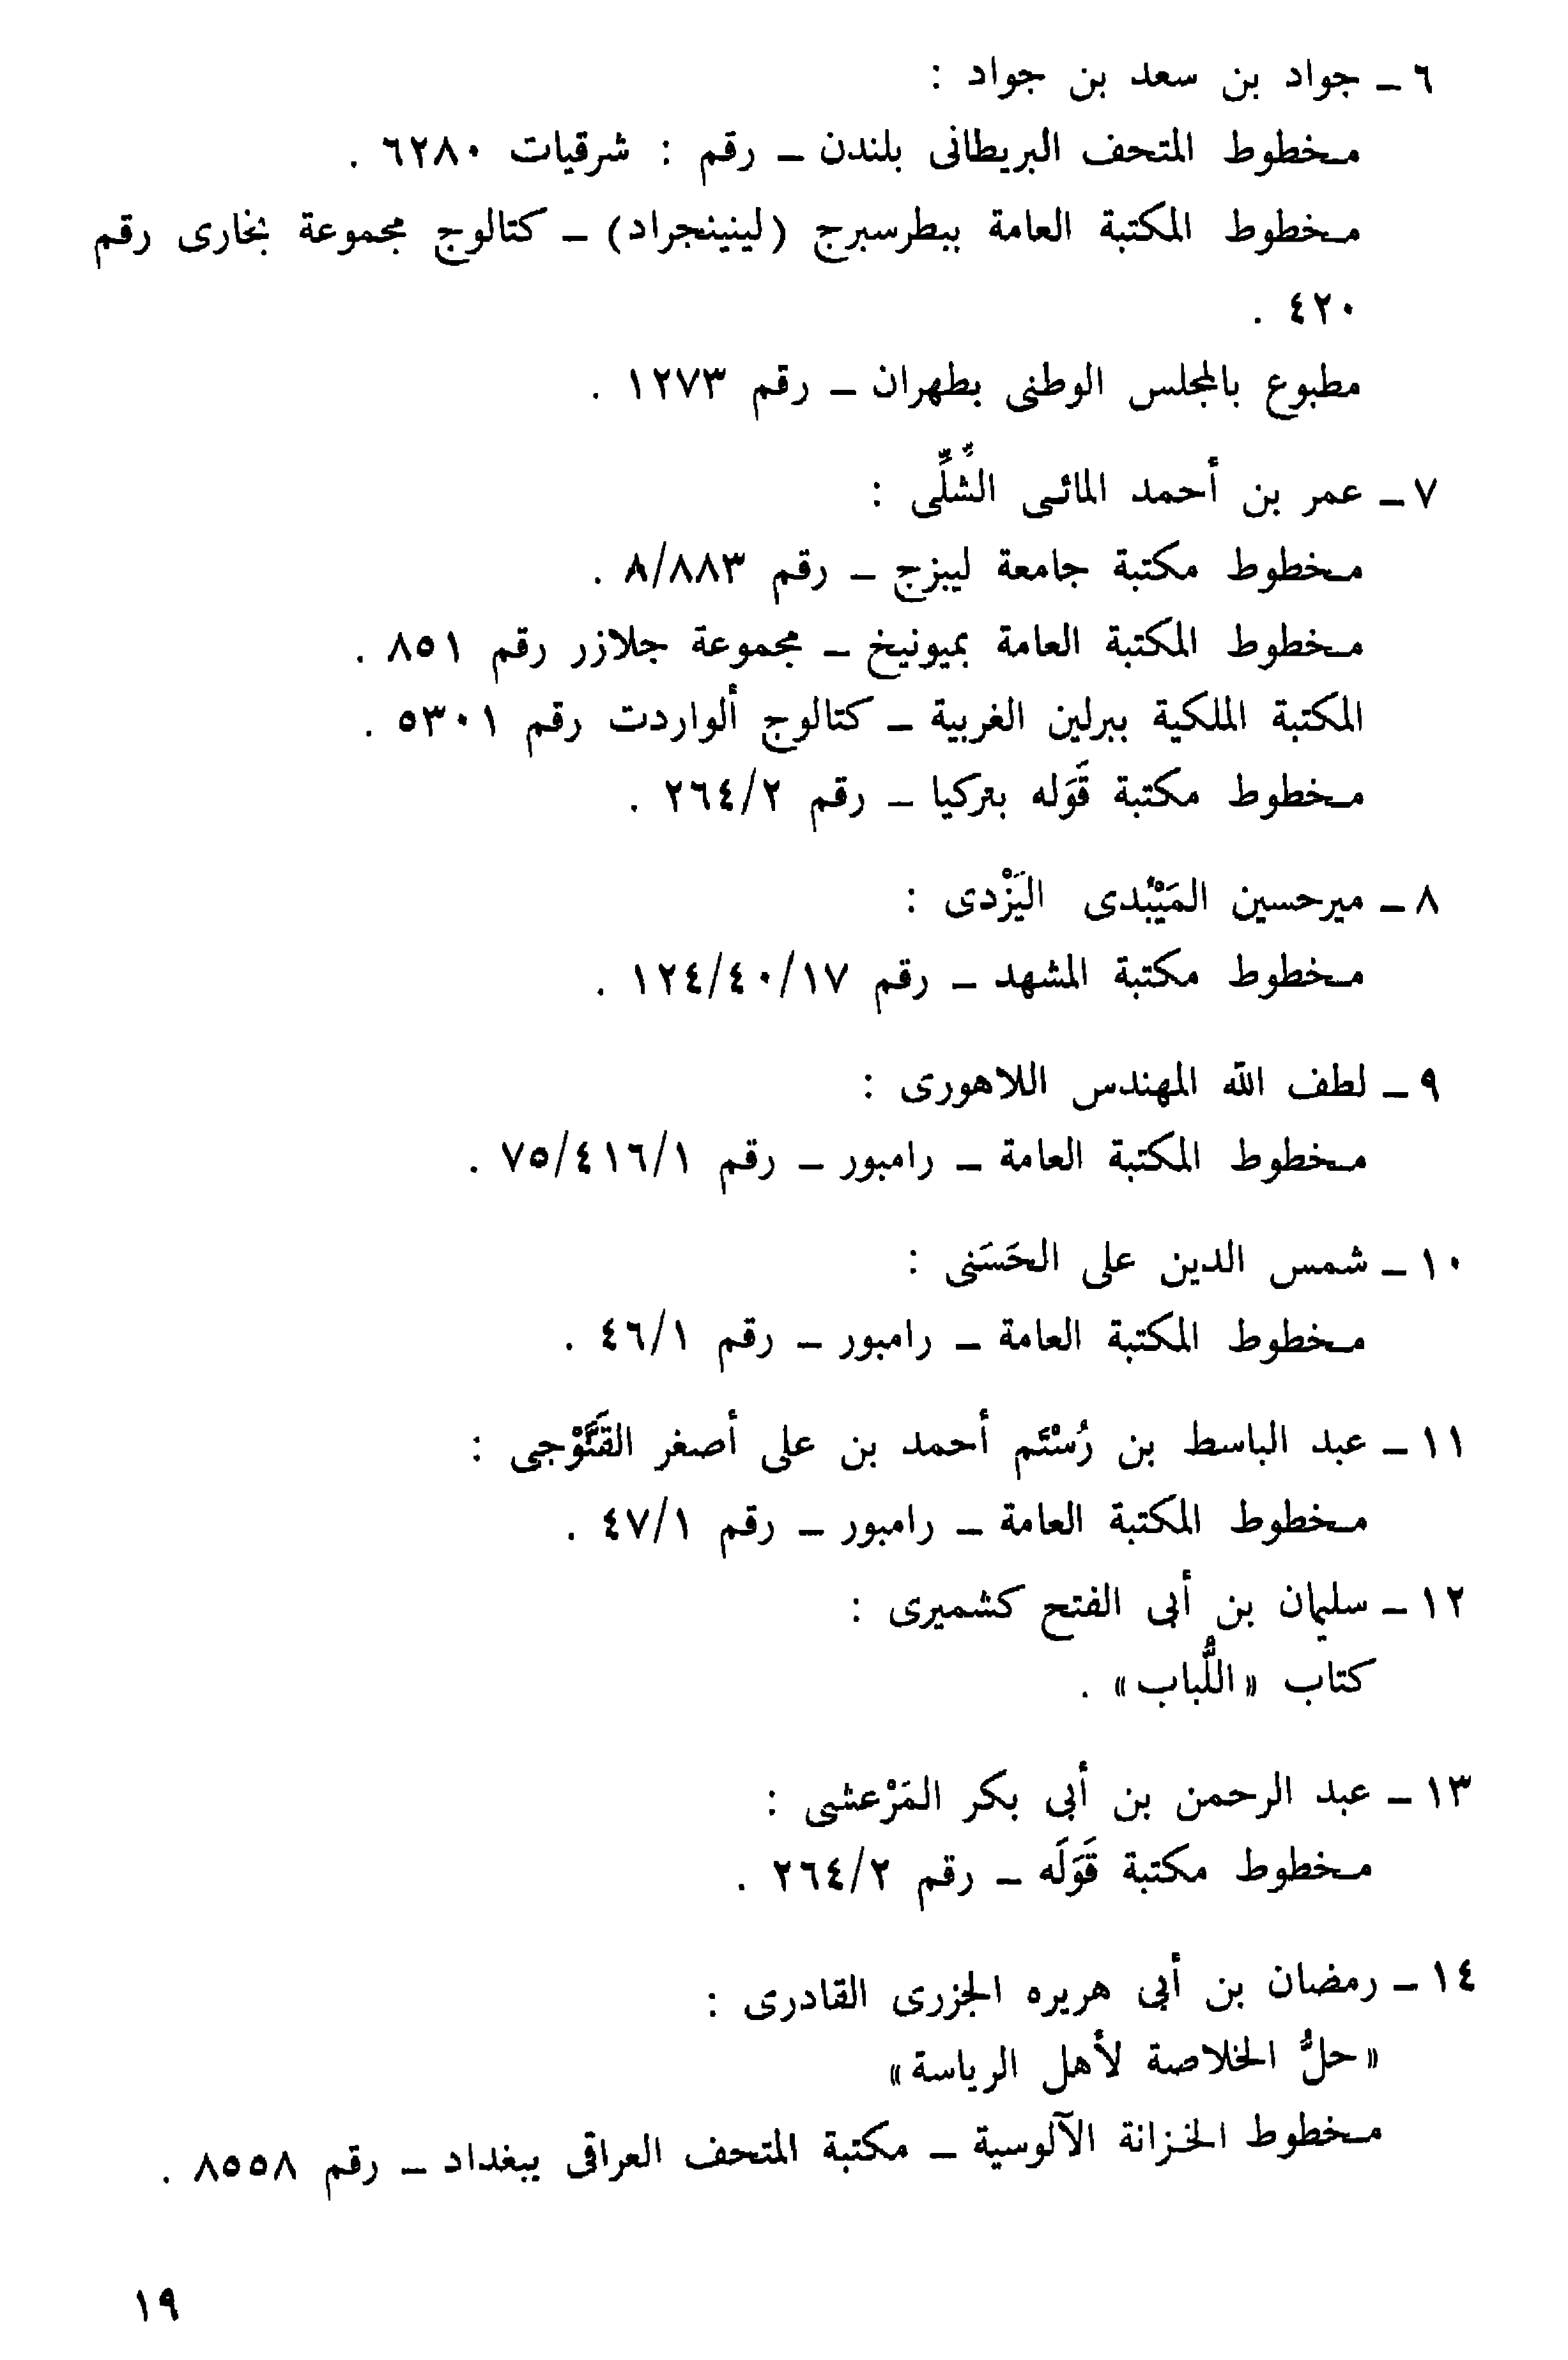 ٦ ــ جواد بن سعد بن جواد :
مخطوط المتحف البريطانى بلندن ــ رقم : شرقيات ٦٢٨٠ .
مخطوط المكتبة العامة ببطرسبرج (لينينجراد) ــ كتالوج مجموعة بخارى رقم
٤٢٠ .
مطبوع بالمجلس الوطنى بطهران ــ رقم ١٢٧٣ .
٧ ــ عمر بن أحمد المائى الشُّلِّى :
مخطوط مكتبة جامعة ليبزج ــ رقم ٨/٨٨٣ .
مخطوط المكتبة العامة بميونيخ ــ مجموعة جلازر رقم ٨٥١ .
المكتبة الملكية ببرلين الغربية ــ كتالوج ألواردت رقم ٥٣٠١ .
مخطوط مكتبة قَوَله بتركيا ــ رقم ٢٦٤/٢ .
٨ ــ ميرحسين المَيْبُدى اليَزْدى :
مخطوط مكتبة المشهد ــ رقم ١٢٤/٤٠/١٧ .
٩ ــ لطف الله المهندس اللاهورى :
مخطوط المكتبة العامة ــ رامبور ــ رقم ٧٥/٤١٦/١ .
١٠ ــ شمس الدين على الحَسَنى :
مخطوط المكتبة العامة ــ رامبور ــ رقم ٤٦/١ .
١١ ــ عبد الباسط بن رُسْتَم أحمد بن على أصغر القَنَّوْجى :
مخطوط المكتبة العامة ــ رامبور ــ رقم ٤٧/١ .
١٢ ــ سليمان بن أبى الفتح كشميرى :
كتاب «اللُّباب» .
١٣ ــ عبد الرحمن بن أبى بكر المَرْعشى :
مخطوط مكتبة قَوَلَه ــ رقم ٢٦٤/٢ .
١٤ ــ رمضان بن أبى هريره الجزرى القادرى :
«حلُّ الخلاصة لأهل الرياسة»
مخطوط الخزانة الآلوسية ــ مكتبة المتحف العراقى ببغداد ــ رقم ٨٥٥٨ .
١٩